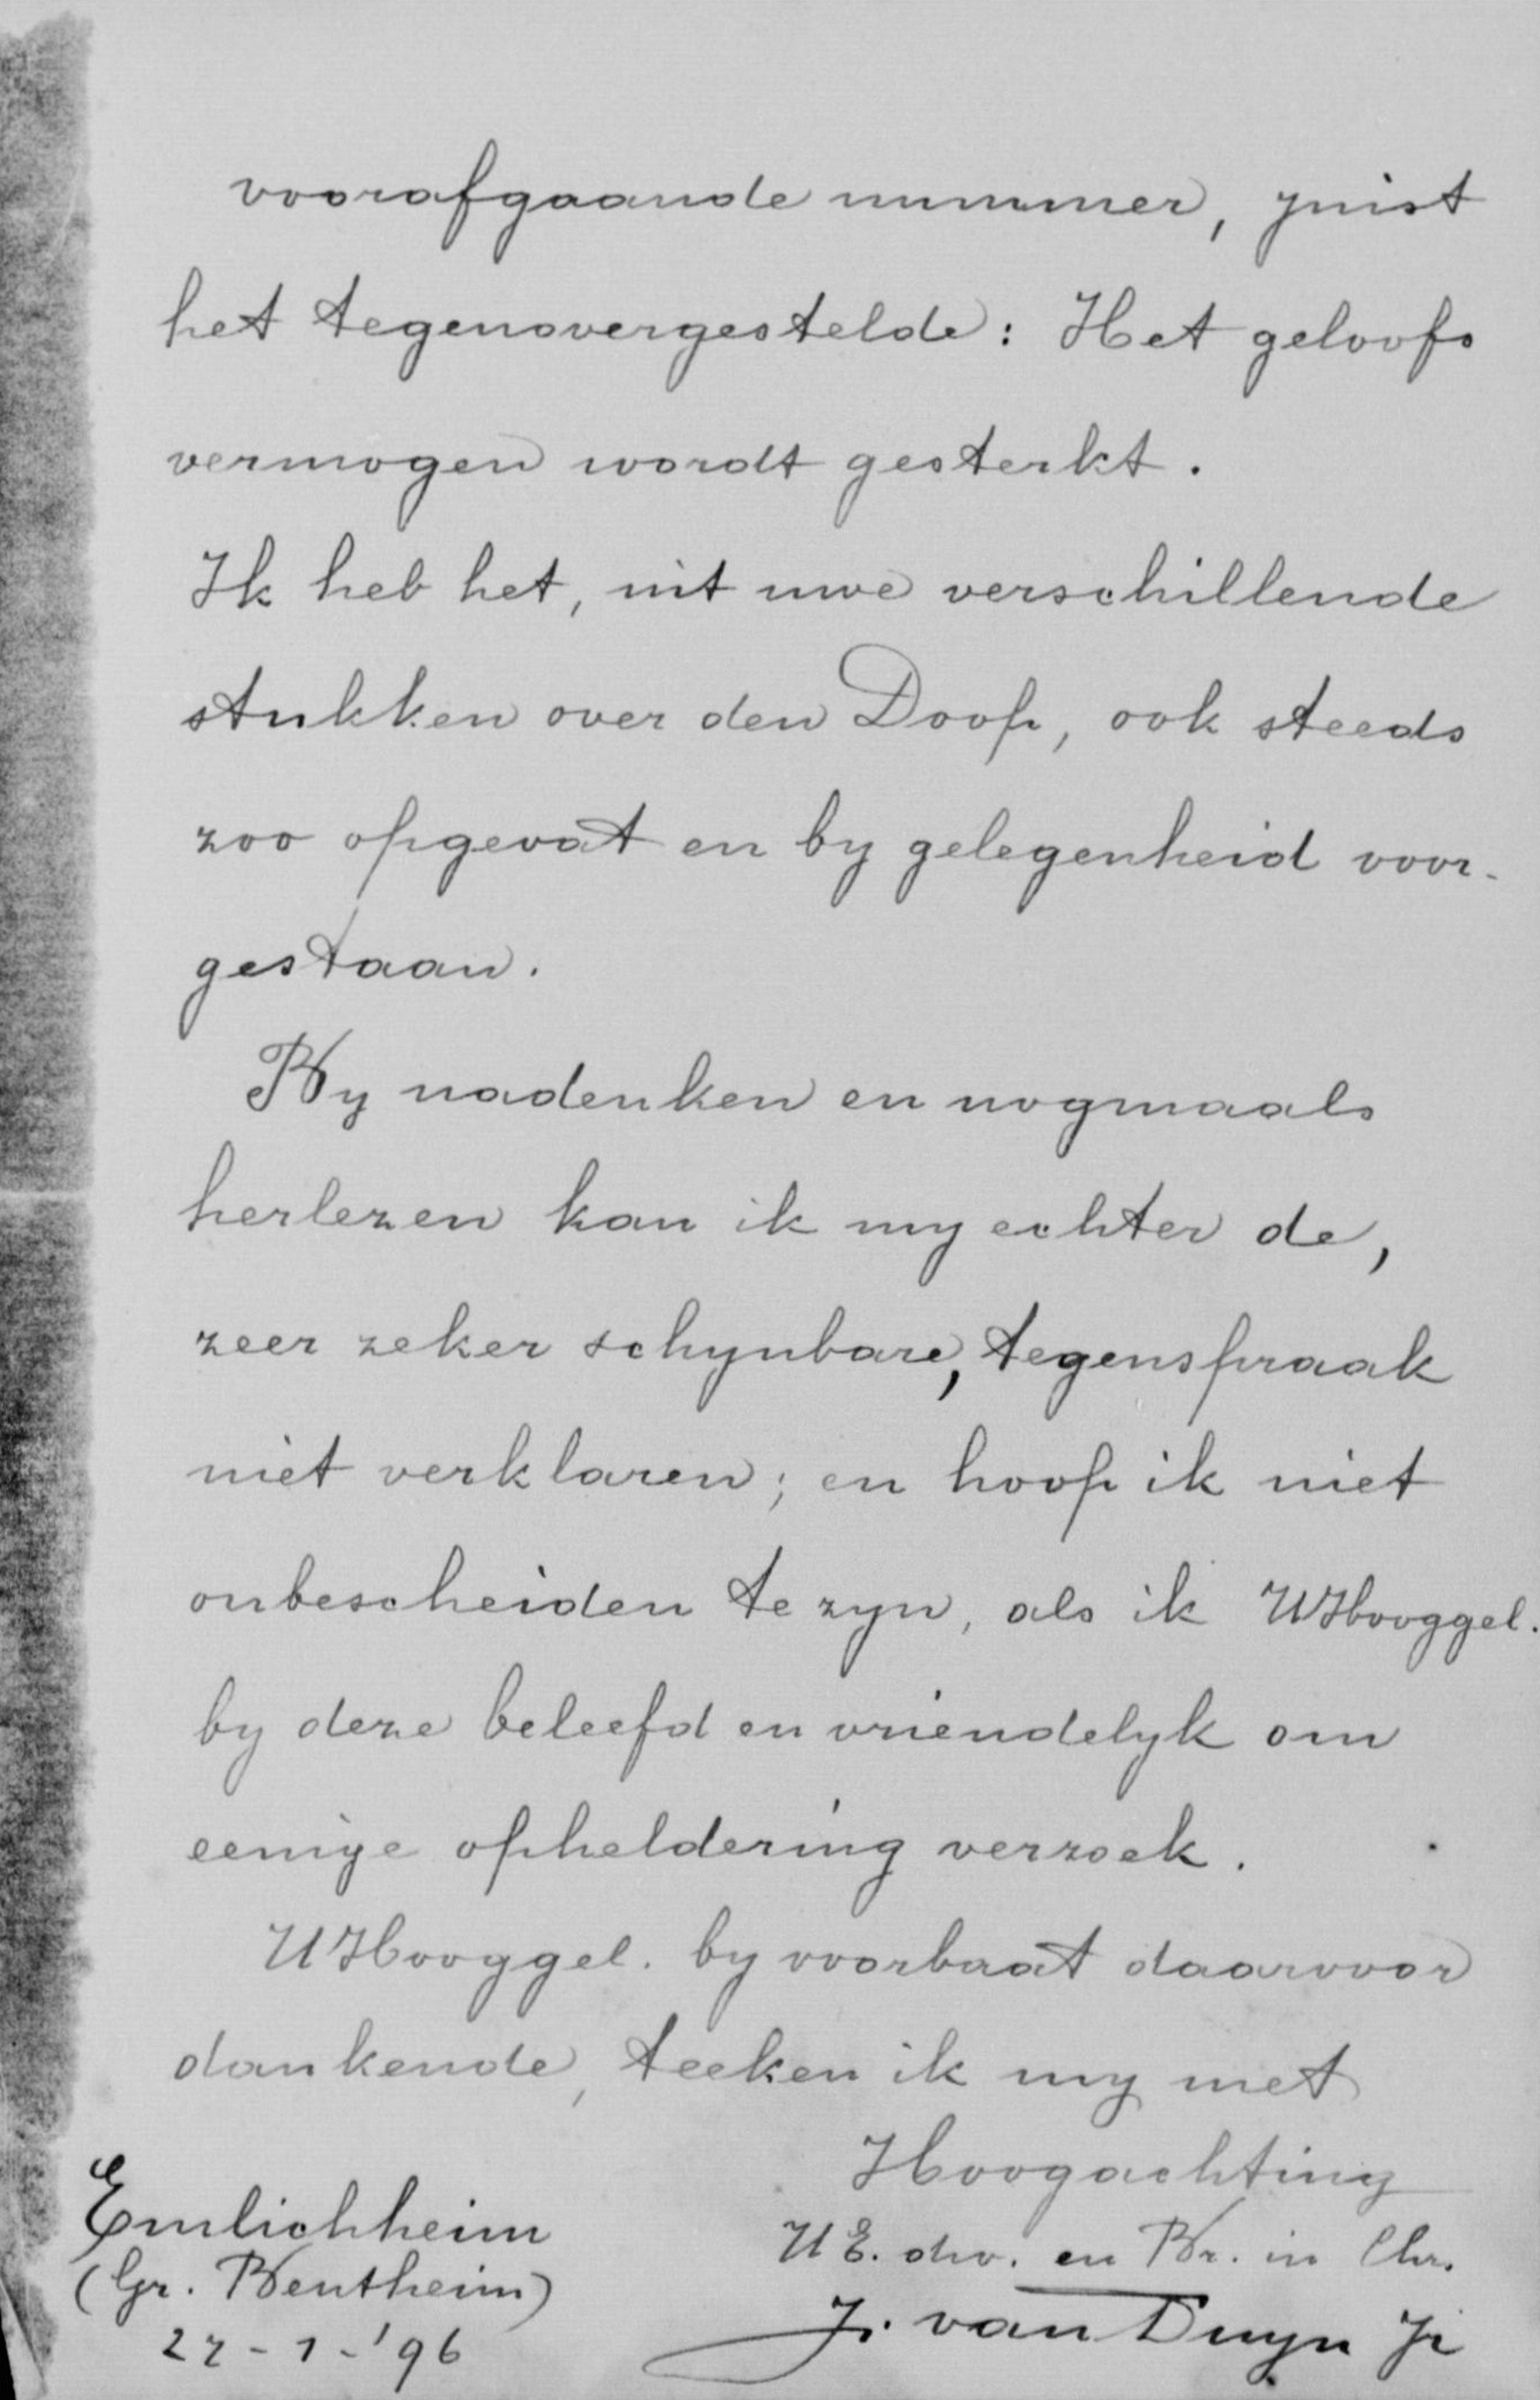 voorafgaande nummer, juist
het tegenovergestelde: Het geloofs
vermogen wordt gesterkt.
Ik heb het, uit uwe verschillende
stukken over den Doop, ook steeds
zoo opgevat en by gelegenheid voor-
gestaan.
By nadenken en nogmaals
herlezen kan ik my echter de,
zeer zeker schynbare, tegenspraak
niet verklaren; en hoop ik niet
onbescheiden te zyn, als ik UHooggel.
by deze beleefd en vriendelyk om
eenige opheldering verzoek.
UHooggel. by voorbaat daarvoor
dankende, teeken ik my met
Hoogachting
UE. dw. en Br. in Chr.
J. van Duyn Jr
Emlichheim
(Gr. Bentheim)
22-1-'96